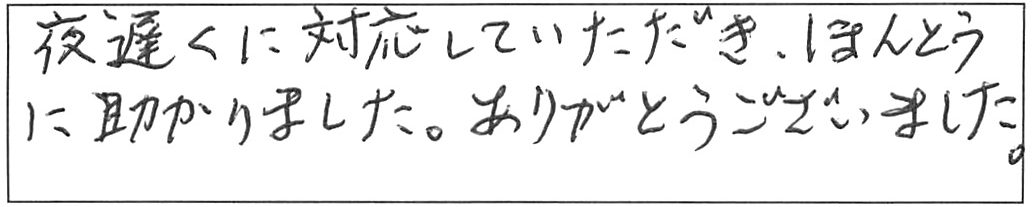 夜遅くに対応していただき、ほんとう
に助かりました。ありがとうございました。